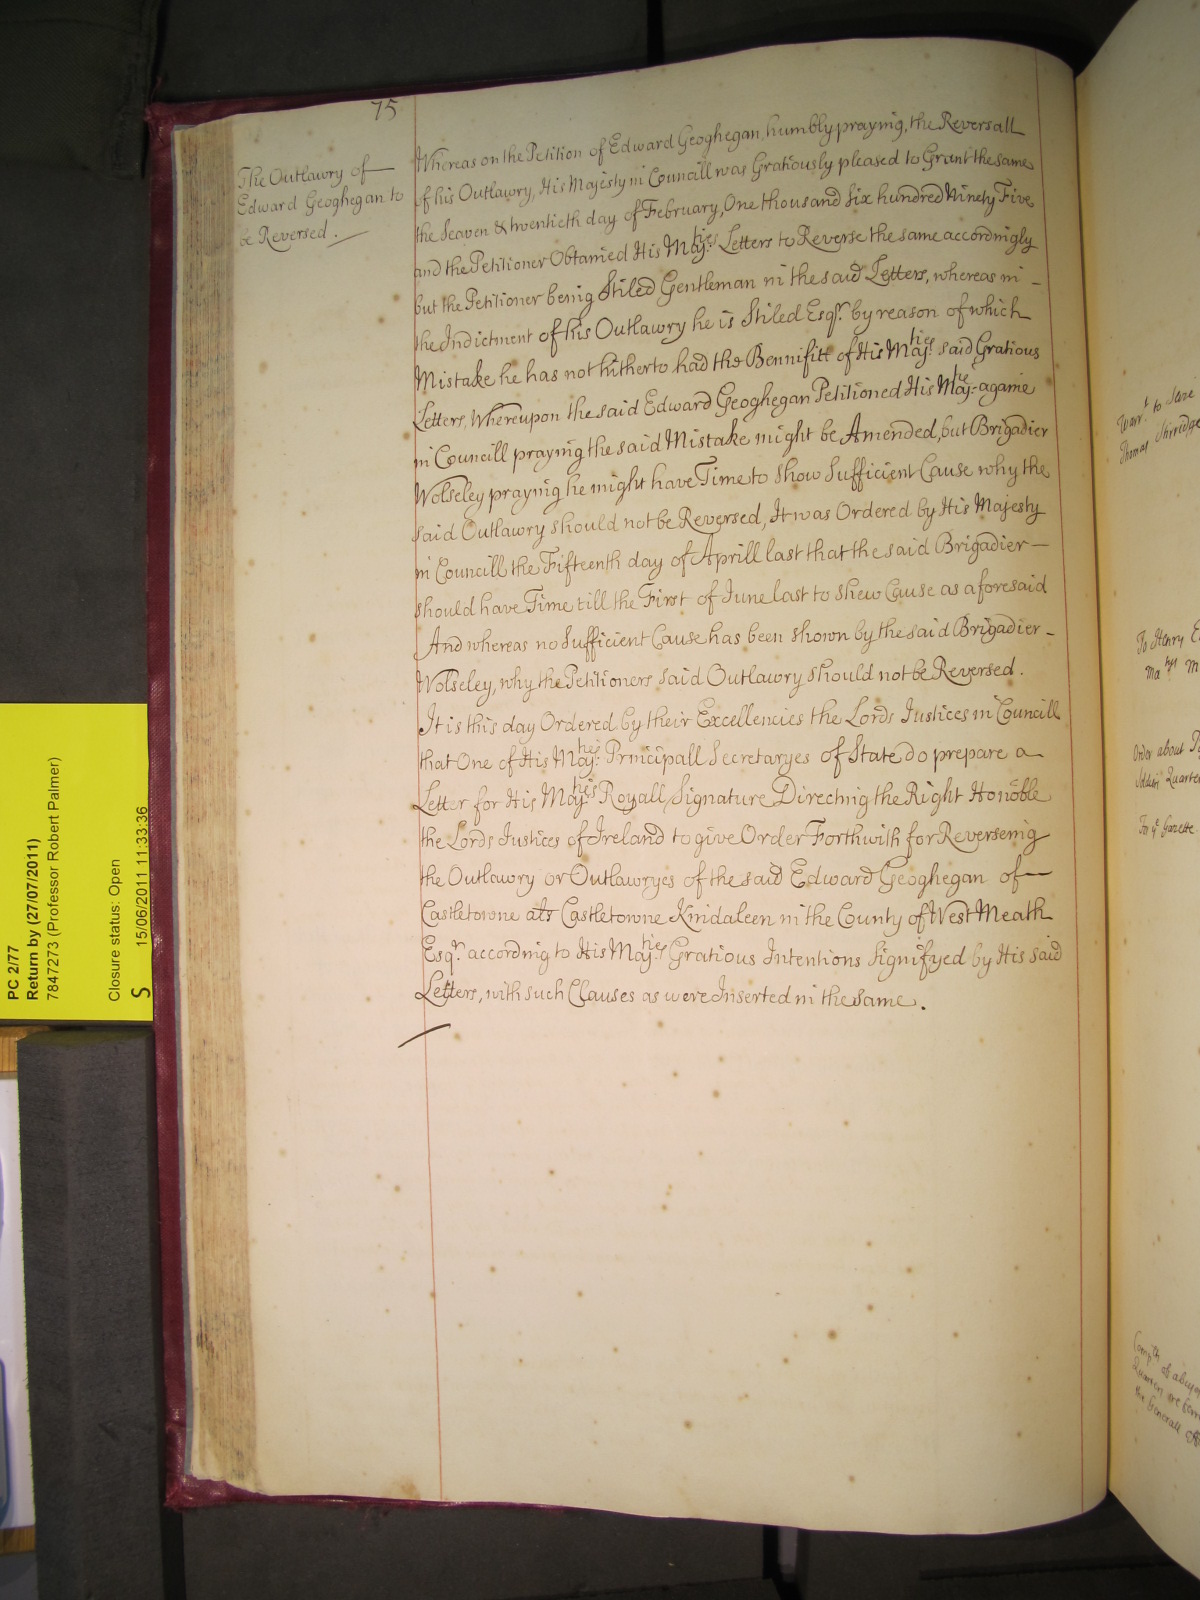 75
The Outlawry of
Edward Geoghegan to
be Reversed.
Whereas on the Petition of Edward Geoghegan, humbly praying, the Reversall
of his Outlawry, His Majesty in Councill was Gratiously pleased to Grant the same
the Seaven & twentieth day of February, One thousand Six hundred Ninety Five,
and the Petitioner Obtained His Maj:ties Letters to Reverse the same accordingly
but the Petitioner being Stiled Gentleman in the said Letters, whereas in -
the Indictment of his Outlawry he is Stiled Esqr. by reason of which
Mistake he has not hitherto had the Bennifitt of His Maj:ties said Gratious
Letters, Whereupon the said Edward Geoghegan Petitioned His Maj:tie againe
in Councill praying the said Mistake might be Amended, but Brigadier
Wolseley praying he might have Time to show Sufficient Cause why the
said Outlawry should not be Reversed, It was Ordered by His Majesty
in Councill the Fifteenth day of Aprill last that the said Brigadier —
should have Time till the First of June last to shew Cause as aforesaid
And whereas no Sufficient Cause has been shown by the said Brigadier -
Wolseley, why the Petitioners said Outlawry should not be Reversed.
It is this day Ordered by their Excellencies the Lords Justices in Councill
that One of His Maj:ties Principall Secretaryes of State do prepare a
Letter for His Maj:ties Royall Signature Directing the Right Honoble
the Lords Justices of Ireland to give Order Forthwith for Reverseing
the Outlawry or Outlawryes of the said Edward Geoghegan of —
Castletowne als Castletowne Kindaleen in the County of West Meath
Esqr. according to His Maj:ties Gratious Intentions Signifyed by His said
Letters, with such Clauses as were Inserted in the same.
Warrt. to
Thomas
To Henry
Order about
To ye Gazette.
PC 2/77
Return by (27/07/2011)
7847273 (Professor Robert Palmer)
Closure status: Open
S 15/06/2011 11:33:36